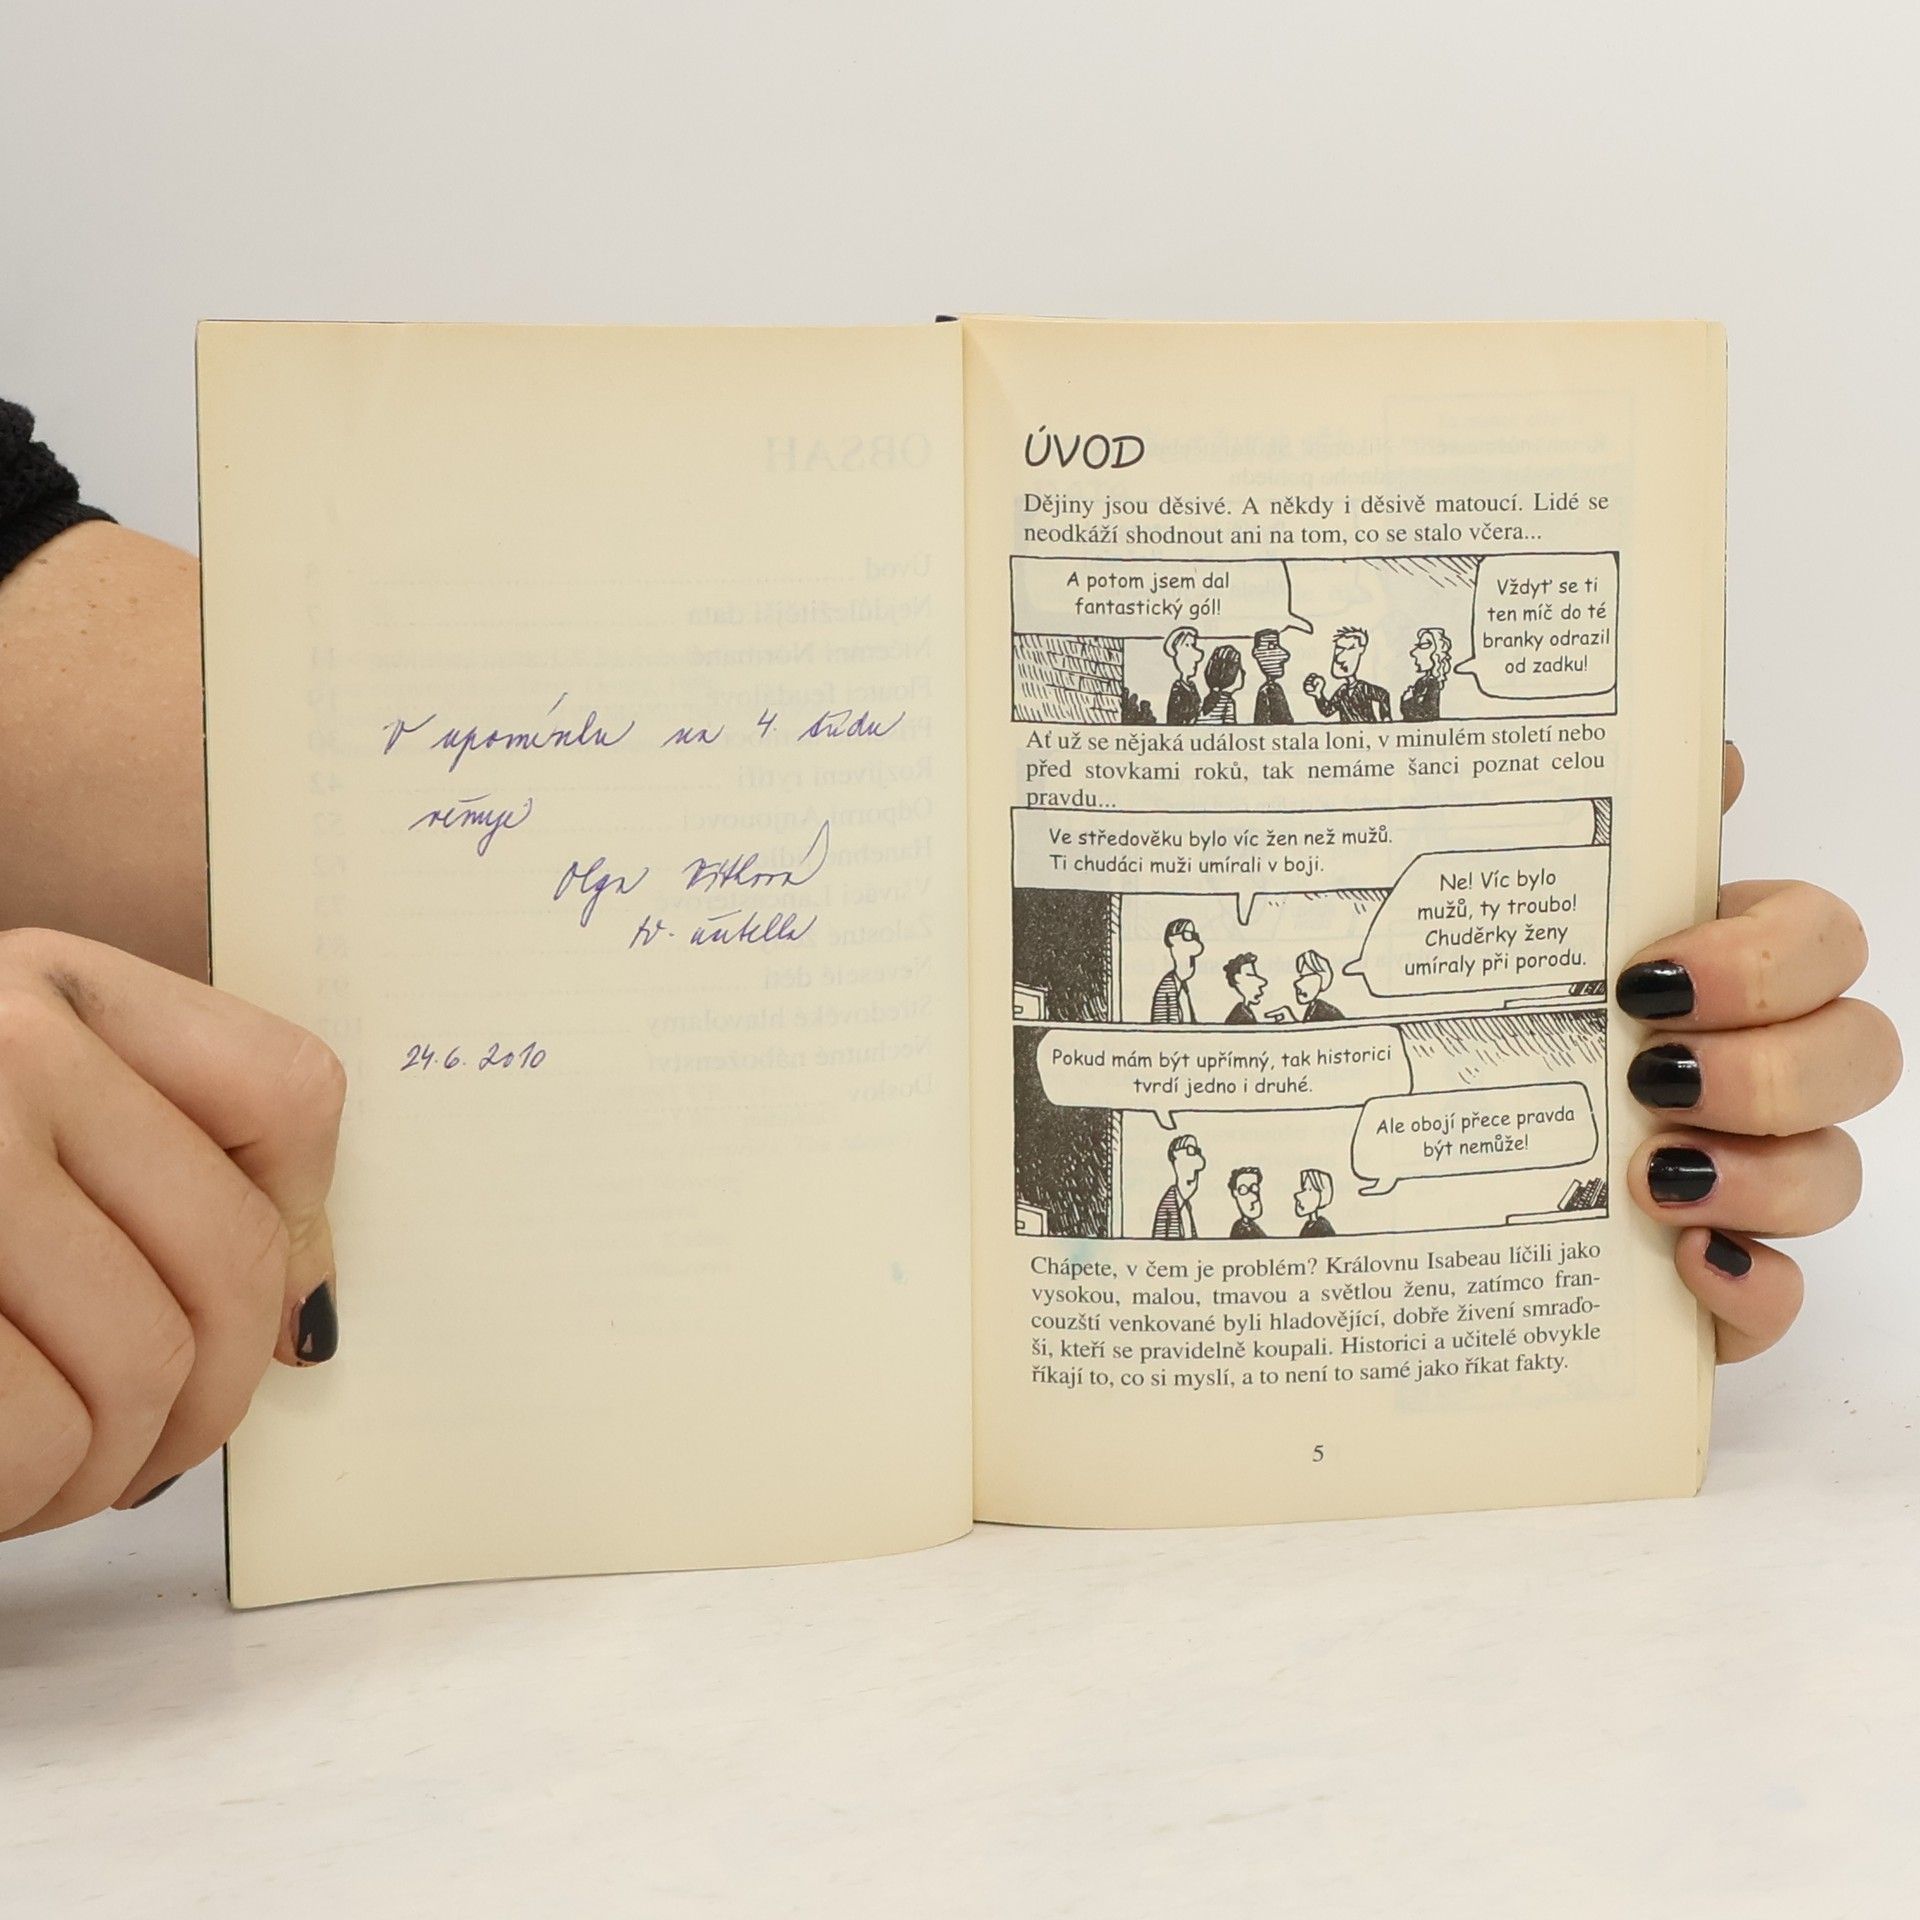 V upomínku na 4. třídu
věnuje
Olga Vítková
tř. učitelka
24.6.2010
ÚVOD
Dějiny jsou děsivé. A někdy i děsivě matoucí. Lidé se
neodkáží shodnout ani na tom, co se stalo včera...
A potom jsem dal
fantastický gól!
Vždyť se ti
ten míč do té
branky odrazil
od zadku!
Ať už se nějaká událost stala loni, v minulém století nebo
před stovkami roků, tak nemáme šanci poznat celou
pravdu...
Ve středověku bylo víc žen než mužů.
Ti chudáci muži umírali v boji.
Ne! Víc bylo
mužů, ty troubo!
Chuděrky ženy
umíraly při porodu.
Pokud mám být upřímný, tak historici
tvrdí jedno i druhé.
Ale obojí přece pravda
být nemůže!
Chápete, v čem je problém? Královnu Isabeau líčili jako
vysokou, malou, tmavou a světlou ženu, zatímco fran-
couzští venkované byli hladovějící, dobře živení smraďo-
ši, kteří se pravidelně koupali. Historici a učitelé obvykle
říkají to, co si myslí, a to není to samé jako říkat fakty.
5